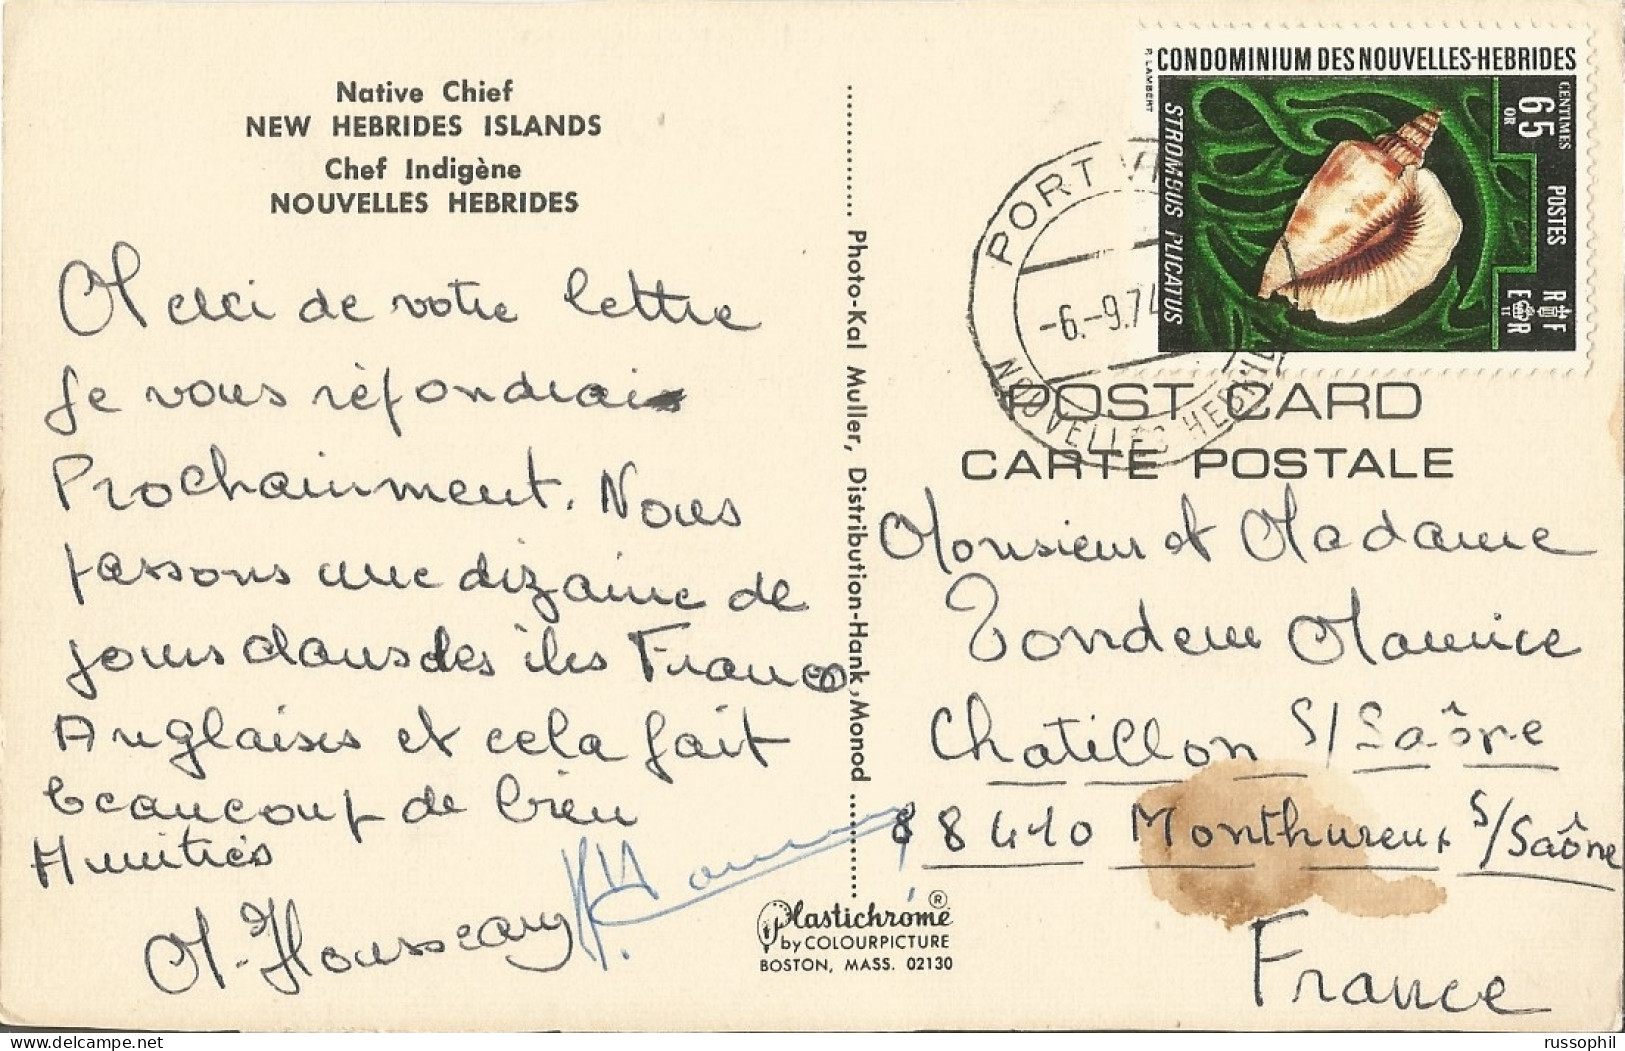 Native Chief
NEW HEBRIDES ISLANDS
Chef Indigène
NOUVELLES HEBRIDES
Merci de votre lettre
Je vous répondrais
Prochainment. Nous
passons une dizaine de
jours dans des iles Franco
Anglaises et cela fait
beaucoup de bien
Amitiés
M. Housseau
Photo-Kal Muller, Distribution-Hank Monod
Plastichrome ®
by COLOURPICTURE
BOSTON, MASS. 02130
CONDOMINIUM DES NOUVELLES-HEBRIDES
P. LAMBERT
STROMBUS PLICATUS
65
CENTIMES
OR
POSTES
RF
E II R
PORT VI
-6.-9.74
NOUVELLES HEBRIDES
POST CARD
CARTE POSTALE
Monsieur et Madame
Tondeur Maurice
Chatillon S/Saône
88410 Monthureux S/Saône
France
russophil